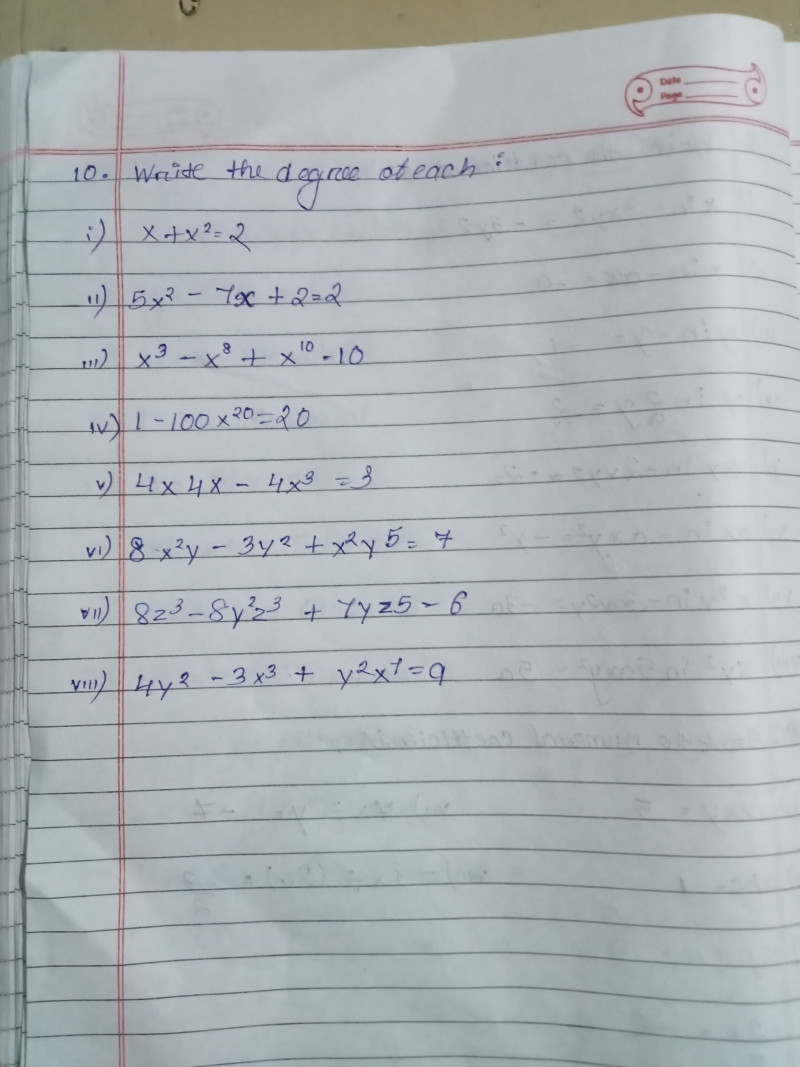 Date
Page
10. Write the degree of each :
i) x + x² = 2
ii) 5x² - 7x + 2 = 2
iii) x³ - x⁸ + x¹⁰ - 10
iv) 1 - 100x²⁰ = 20
v) 4x 4x - 4x³ = 3
vi) 8 x²y - 3y² + x²y5 = 7
vii) 8z³ - 8y²z³ + 7yz5 - 6
viii) 4y² - 3x³ + y²x⁷ = 9